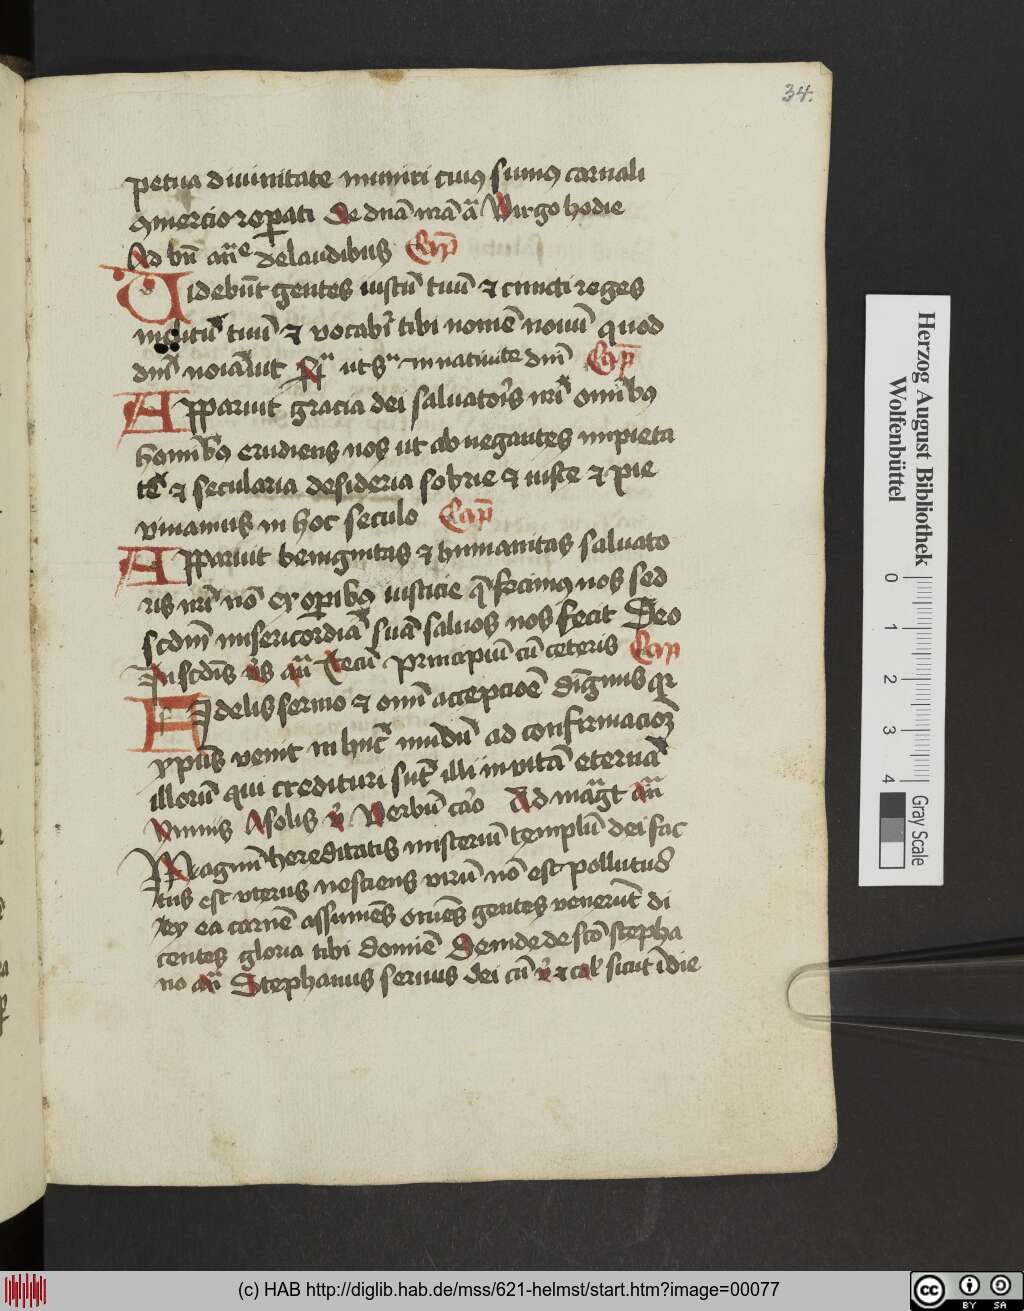 34.
petua diuinitate muniri cuius sumus carnali
ꝯmercio reꝑati De dnā nr̄ā a͞ Virgo hodie
Ad bn̄ an̄e de laudibus Cap̄
Videbūt gentes iustū tuū ⁊ cuncti reges
inclitū tuū ⁊ vocabr̄ tibi nomē nouū quod
dn̄i noīauit ut in natiuite dn̄i Cap̄
Apparuit gracia dei saluatoris nr̄i omībꝰ
homībꝰ erudiens nos ut abnegantes impieta
tē ⁊ secularia desideria sobrie ⁊ iuste ⁊ pie
viuamus in hoc seculo Cap̄
Apparuit benignitas ⁊ humanitas saluato
ris nr̄i nō ex oꝑibꝰ iusticie q̄ fecimꝰ nos sed
scdm̄ misericordiā suā saluos nos fecit Deo
In scdīs v̉s an̄ Tecū principiū cū ceteris Cap
Fidelis sermo ⁊ omī accepcioē dignus qz
xpūs venit in hūc mūdū ad confirmacioꝫ
illorū qui credituri sūt illi in vitā eternā
Ymnus A solis v̉ Verbū cā̉o Ad māgt an̄
Magnū hereditatis misteriū templū dei fac
tus est vterus nesciens virū nō est pollutus
ex ea carnē assumēs omēs gentes venerūt di
centes gloria tibi domīe Deinde de sctō stepha
no an̄ Stephanus seruus dei cū v̉ ⁊ col̄ sicut ī die
Herzog August Bibliothek
Wolfenbüttel
0 1 2 3 4
Gray Scale
(c) HAB http://diglib.hab.de/mss/621-helmst/start.htm?image=00077
cc BY SA